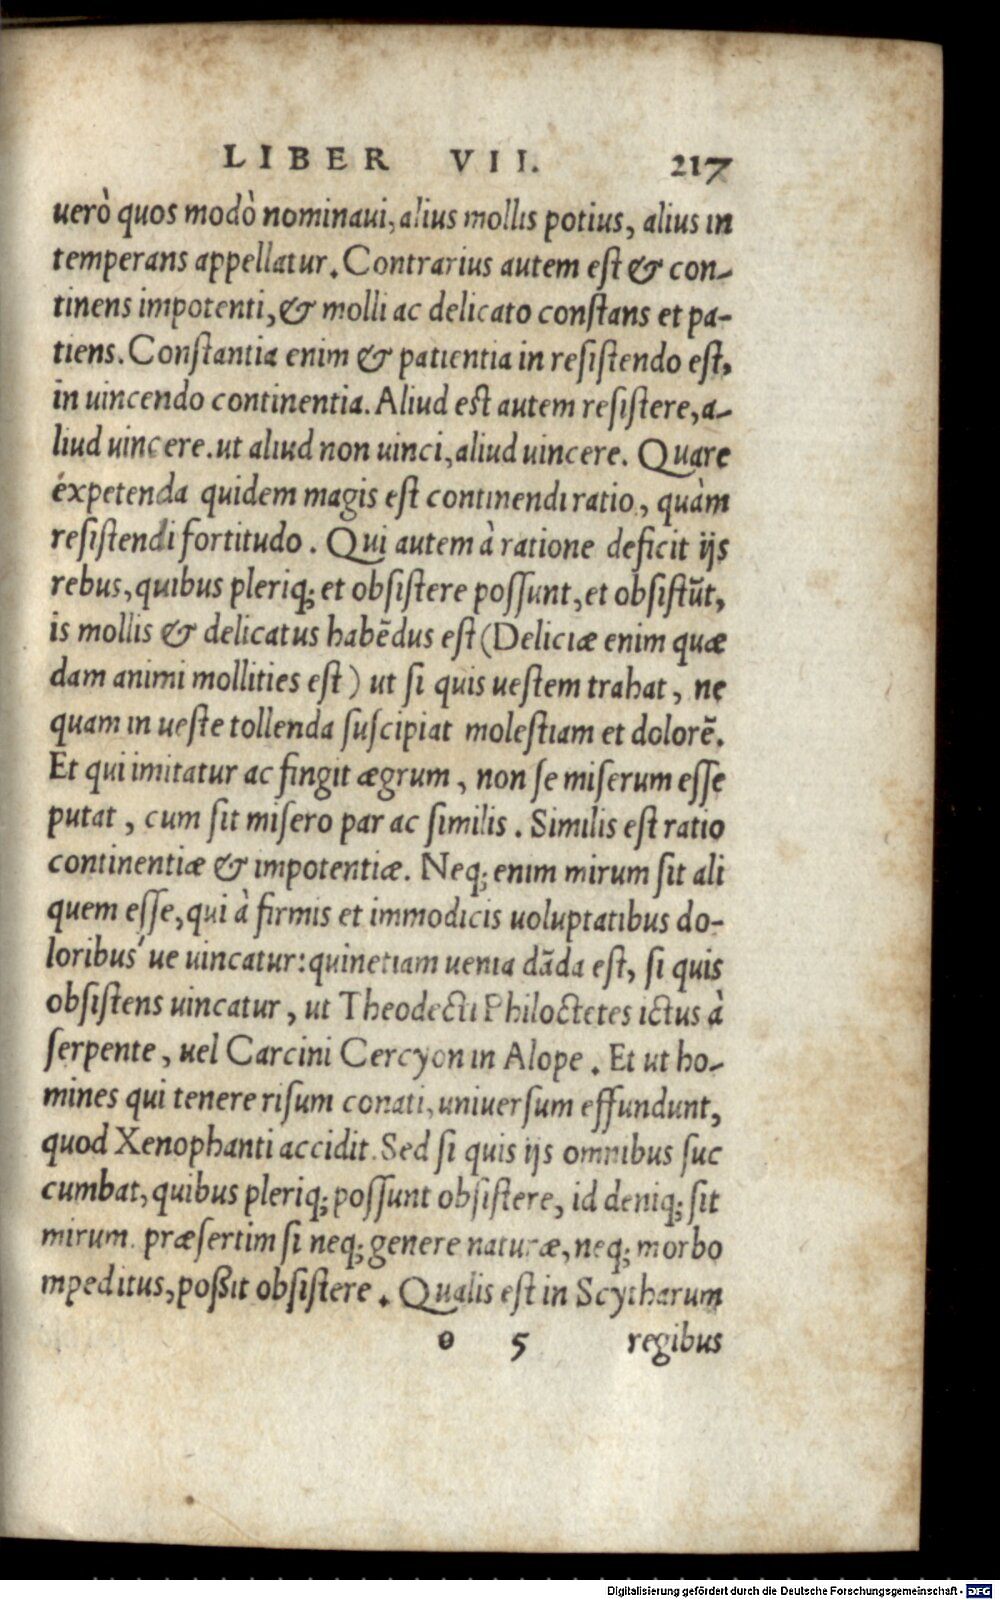 LIBER VII. 217
uerò quos modò nominaui, alius mollis potius, alius in
temperans appellatur. Contrarius autem eſt & con-
tinens impotenti, & molli ac delicato conſtans et pa-
tiens. Conſtantia enim & patientia in reſiſtendo eſt,
in uincendo continentia. Aliud est autem reſiſtere, a-
liud uincere. ut aliud non uinci, aliud uincere. Quare
éxpetenda quidem magis eſt continendi ratio, quàm
reſiſtendi fortitudo. Qui autem à ratione deficit ijs
rebus, quibus pleriq; et obſiſtere poſſunt, et obſiſtūt,
is mollis & delicatus habēdus eſt (Deliciæ enim quæ
dam animi mollities eſt) ut ſi quis ueſtem trahat, ne
quam in ueſte tollenda ſuſcipiat moleſtiam et dolorē.
Et qui imitatur ac fingit ægrum, non ſe miſerum eſſe
putat, cum ſit miſero par ac ſimilis. Similis eſt ratio
continentiæ & impotentiæ. Neq; enim mirum ſit ali
quem eſſe, qui à firmis et immodicis uoluptatibus do-
loribus´ue uincatur: quinetiam uenia dāda eſt, ſi quis
obſiſtens uincatur, ut Theodecti Philoctetes ictus à
ſerpente, uel Carcini Cercyon in Alope. Et ut ho-
mines qui tenere riſum conati, uniuerſum effundunt,
quod Xenophanti accidit. Sed ſi quis ijs omnibus ſuc
cumbat, quibus pleriq; poſſunt obſiſtere, id deniq; ſit
mirum. præſertim ſi neq; genere naturæ, neq; morbo
mpeditus, poßit obſiſtere. Qualis eſt in Scytharum
o 5 regibus
Digitalisierung gefördert durch die Deutsche Forschungsgemeinschaft - DFG